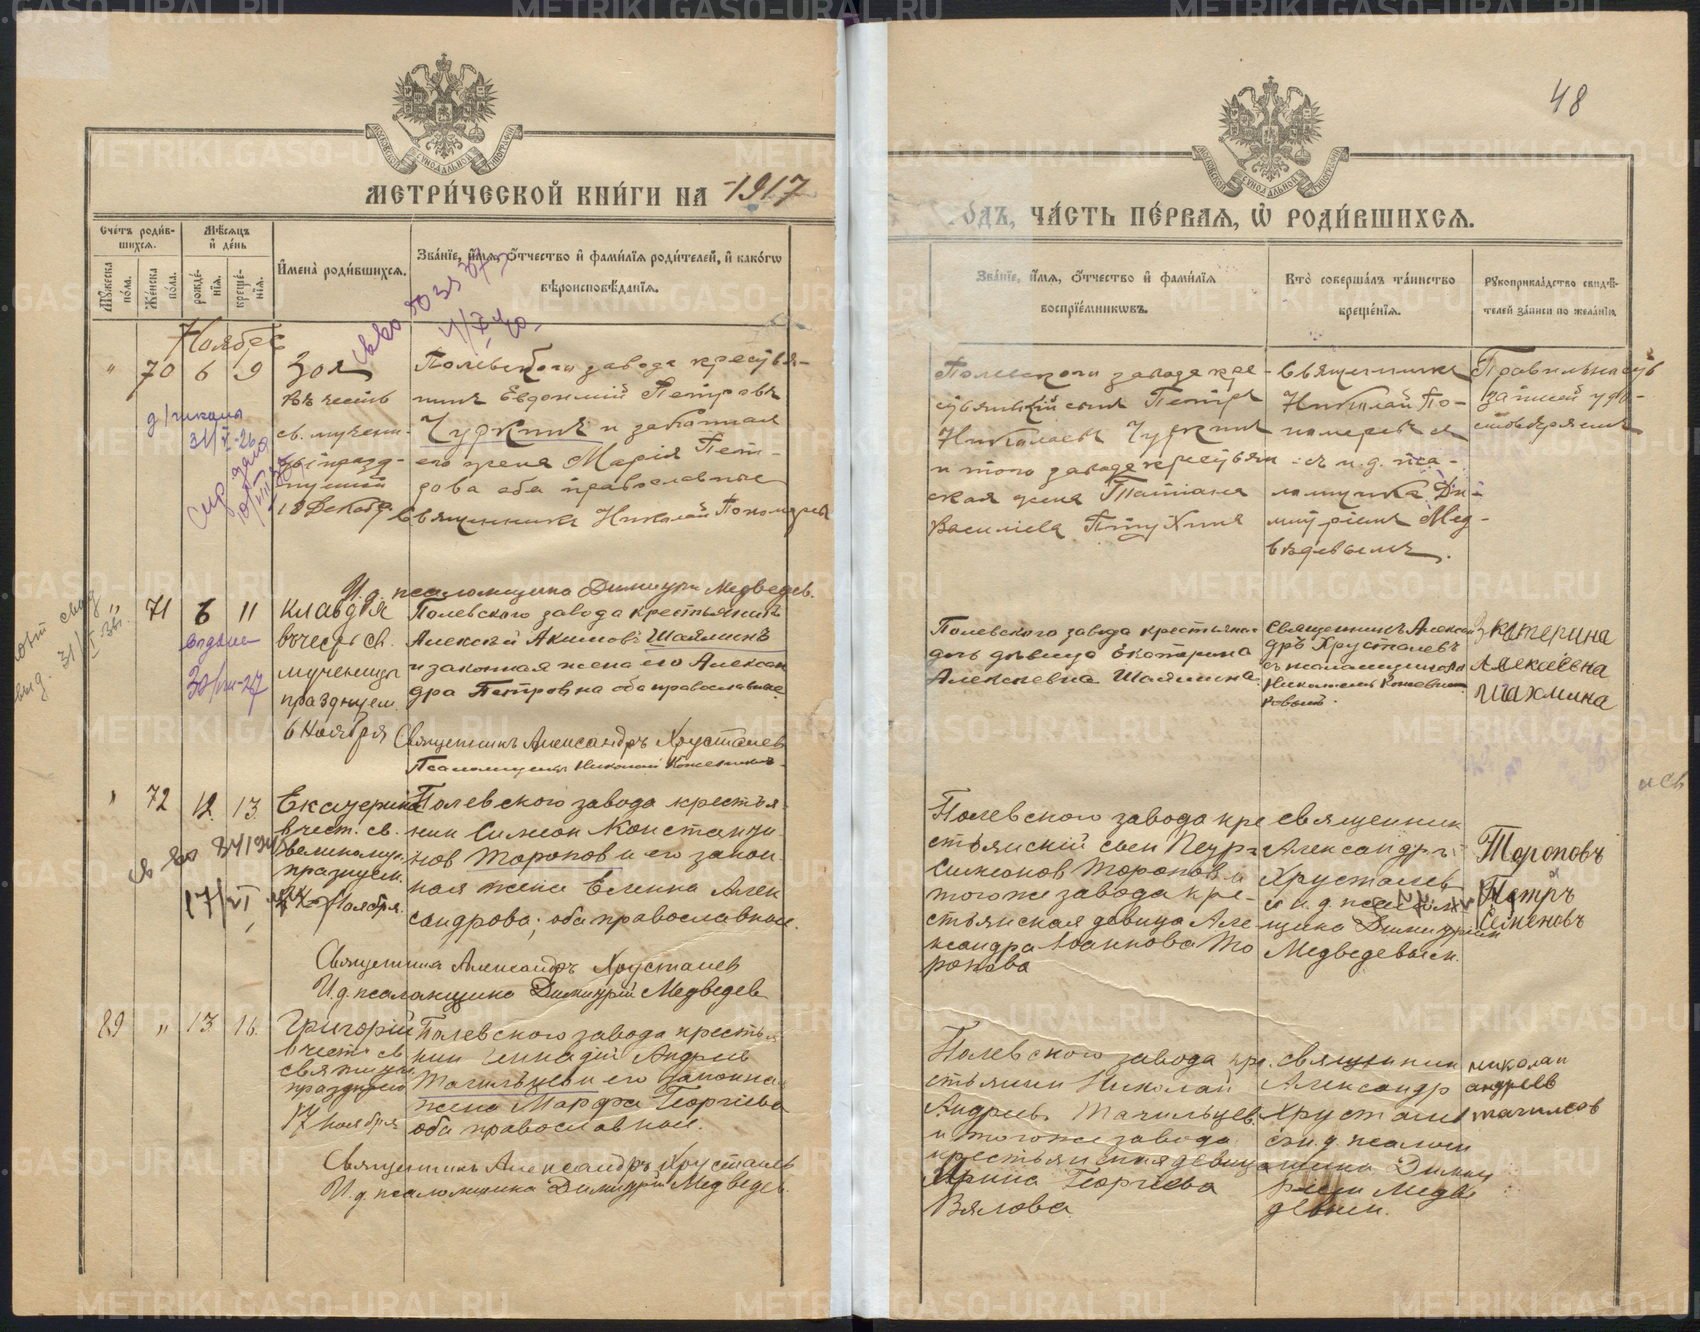 METRIKI.GASO-URAL.RU
48
МОСКОВСКОЙ СѴНОДАЛЬНОЙ ТИПОГРАФІИ
МЕТРИ́ЧЕСКОЙ КНИ́ГИ НА 1917
О́ДЪ, ЧА́СТЬ ПЕ́РВАЯ, Ѽ РОДИ́ВШИХСЯ.
Сче́тъ роди́в-
шихся.
Мѣ́сяцъ
и҆ де́нь
Му́жеска
по́ла.
Же́нска
по́ла.
рожде́-
нїя.
креще́-
нїя.
И҆мена̀ роди́вшихся.
Зва́нїе, и҆́мя, ѻ҆́тчество и҆ фами́лїя роди́телей, и҆ како́гѡ
вѣроисповѣ́данїя.
Зва́нїе, и҆́мя, ѻ҆́тчество и҆ фами́лїя
воспрїе́мникѡвъ.
Кто̀ соверша́лъ та́инство
креще́нїя.
Рꙋкоприкла́дство свидѣ́-
телей за́писи по жела́нїю.
Ноябрь
" 70 6 9
Зоя
въ честь
св. мучени-
цы празд-
нуемой
18 Декабр.
Полевского завода крестья-
нинъ Евдокимій Петровъ
Чуркинъ и законная
его жена Марія Пет-
рова оба православные
Священникъ Николай Пономаревъ
И. д. псаломщика Димитрій Медведев.
Полевского завода кре-
стьянскій сынъ Петръ
Николаевъ Чуркинъ
и того завода крестьян-
ская жена Татіана
Василіева Птухина
Священникъ
Николай По-
номаревъ
съ и. д. пса-
ломщика Ди-
митріемъ Мед-
вѣдевымъ.
Правильность
записей удо-
стовѣряемъ
31/V-26
" 71 6 11
Клавдія
въ честь св.
мученицы
празднуем.
6 Ноября
Полевского завода крестьянинъ
Алексѣй Акимовъ Шахминъ
и законная жена его Алексан
дра Петровна оба православные
Священникъ Александръ Хрусталевъ
Псаломщикъ Николай Кожевниковъ
Полевского завода крестьян.
дочь дѣвица Екатерина
Алексеевна Шахмина.
Священникъ Алексан
дръ Хрусталевъ
съ псаломщикомъ
Николаемъ Кожевни
ковымъ.
Екатерина
Алексеевна
Шахмина
30/VIII-27
72 12 13
Екатерина
в чест. св.
великомуч.
празднуем.
24 Ноября.
Полевского завода крестья-
нин Симеон Константи-
нов Торопов и его закон-
ная жена Еленна Алек
сандрова; оба православные.
Священникъ Александръ Хрусталев
И. д. псаломщика Димитрій Медведев
Полевского завода кре
стьянскій сын Петръ
Симеонов Торопов и
того же завода кре-
стьянская девица Але-
ксандра Іоаннова То
ропова
Священник
Александръ
Хрусталев
и и. д. псалом
щика Димитрій
Медведевым.
Тороповъ
Петръ
Семеновъ
17/VI
89 " 13 16
Григорій
в честь св
святителя
празднуемо
17 ноября
Полевского завода крестья
нин Геннадій Андреев
Тагильцев и его законная
жена Марфа Георгіева
оба православные.
Священникъ Александръ Хрусталев
И. д. псаломщика Димитрій Медведев.
Полевского завода кре-
стьянин Николай
Андреев Тагильцев
и того же завода
крестьянская девица
Ирина Георгіева
Вялова
священник
Александр
Хрусталев
с и. д. псалом
щика Димит
ріем Медве
девым.
николаи
андреев
тагилцов